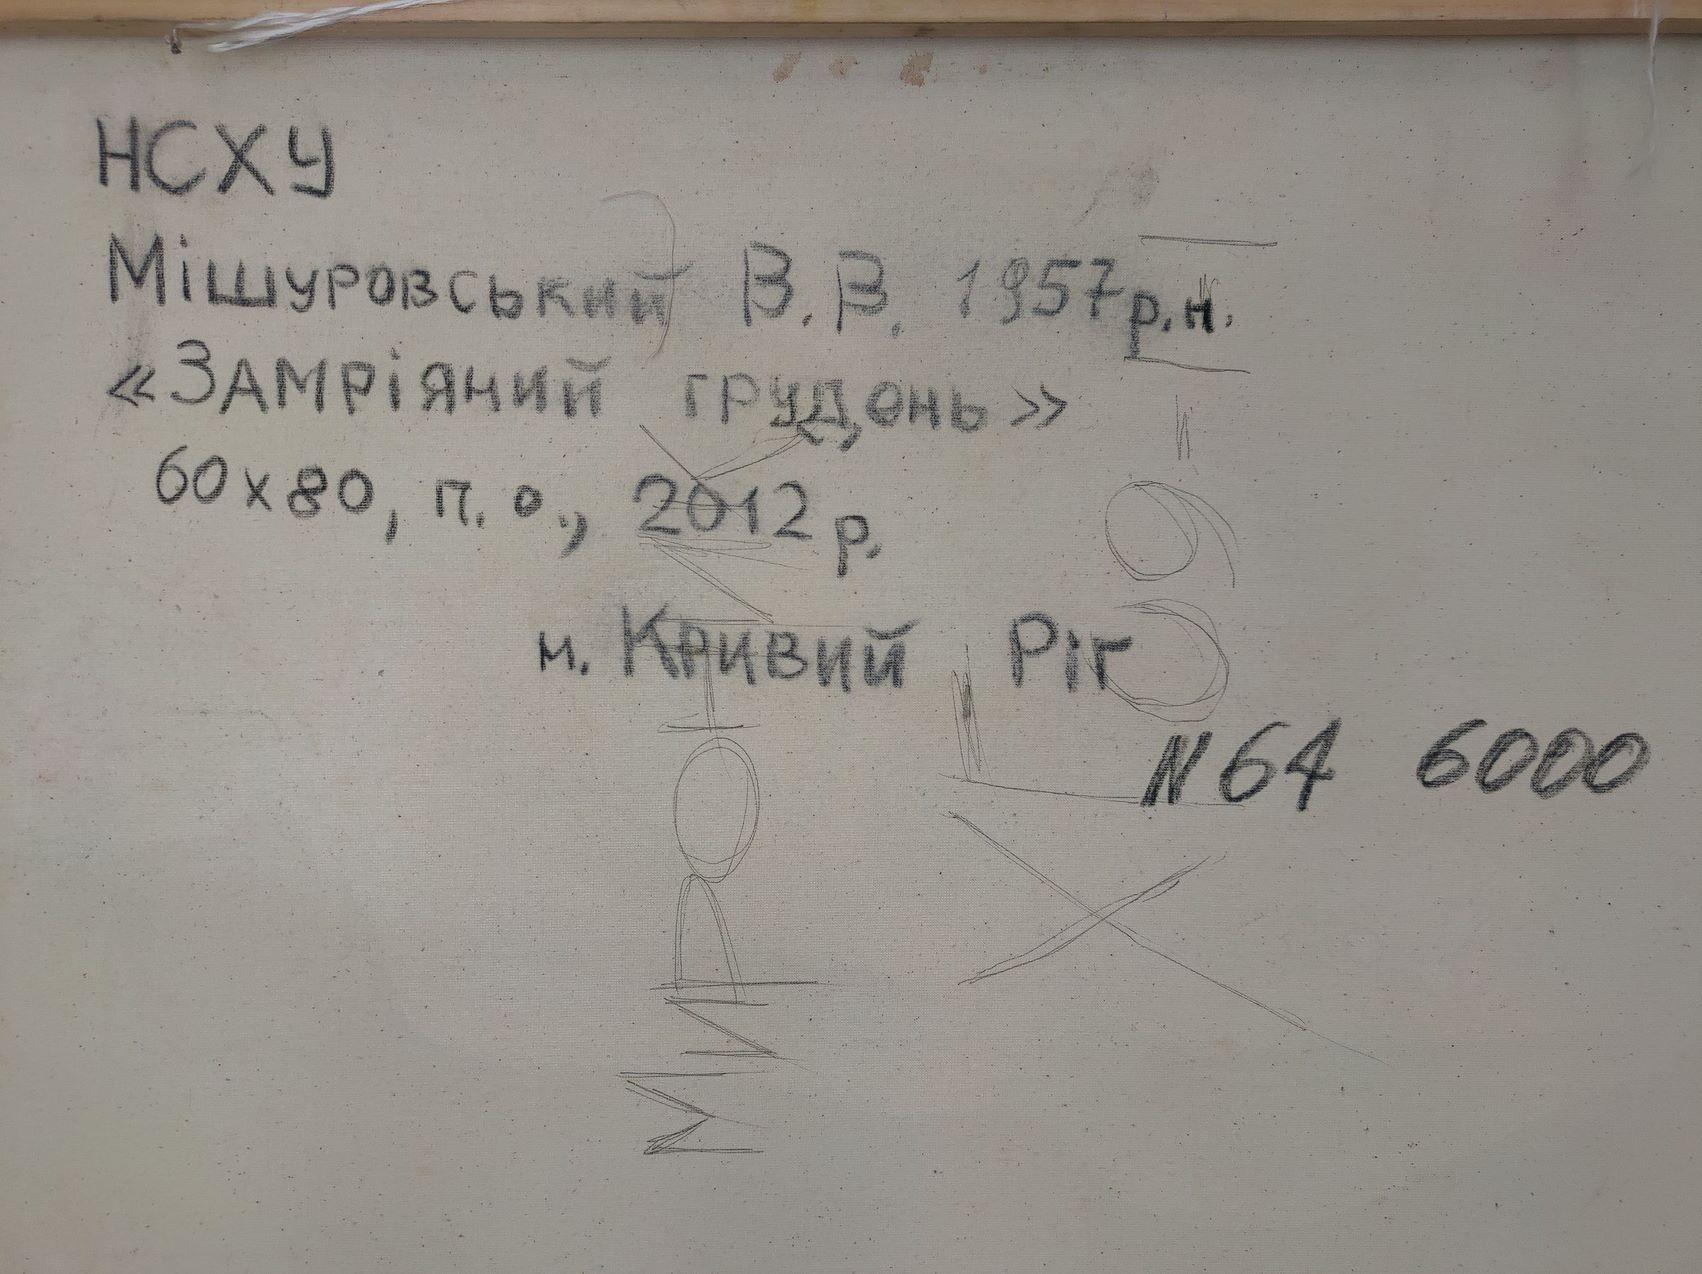 НСХУ
Мішуровський В.В. 1957 р.н.
«Замріяний грудень»
60х80, п.о., 2012 р.
м. Кривий Ріг
N 64 6000